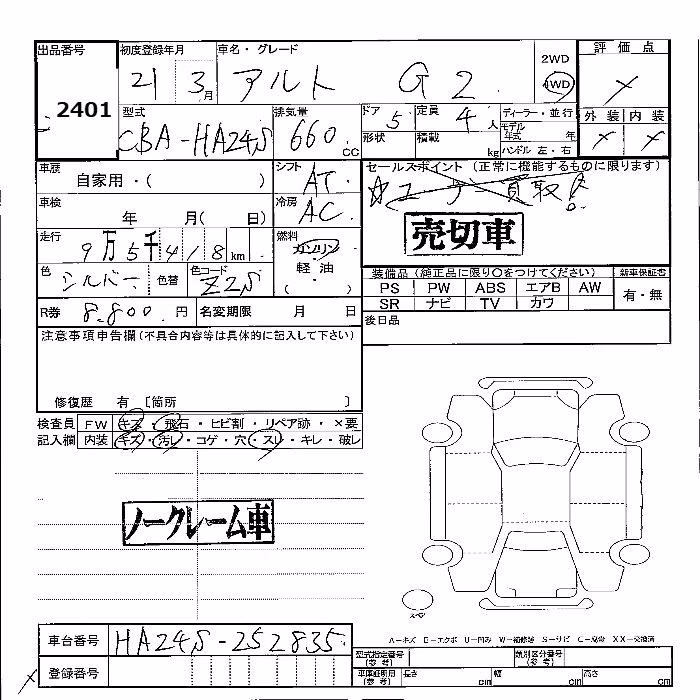 出品番号 初度登録年月 車名・グレード 2WD 4WD 評価点
2401 21 3月 アルト G2
外装 内装
型式 排気量 ドア 定員 ディーラー・並行
CBA-HA24S 660cc 5 4人 モデル年式 年
形状 積載 kg ハンドル 左・右
車歴 シフト セールスポイント (正常に機能するものに限ります)
自家用・( ) AT
車検 冷房
年 月( 日) AC 売切車
走行 燃料
9万5千418km ガソリン
色 色替 色コード 軽油 装備品 (純正品に限り○をつけてください) 新車保証書
シルバー Z2S ( ・ ) PS PW ABS エアB AW 有・無
SR ナビ TV カワ
R券 8,800円 名変期限 月 日 後日品
注意事項申告欄 (不具合内容等は具体的に記入して下さい)
修復歴 有 〔箇所 〕
検査員 FW キズ・飛石・ヒビ割・リペア跡・×要
記入欄 内装 キズ・汚レ・コゲ・穴・スレ・キレ・破レ
ノークレーム車
スペア
A-キズ E-エクボ U-凹み W-補修跡 S-サビ C-腐食 XX-交換済
車台番号 HA24S-252835
型式指定番号 (参考) 類別区分番号 (参考)
登録番号 車庫証明用 (参考) 長さ cm 幅 cm 高さ cm